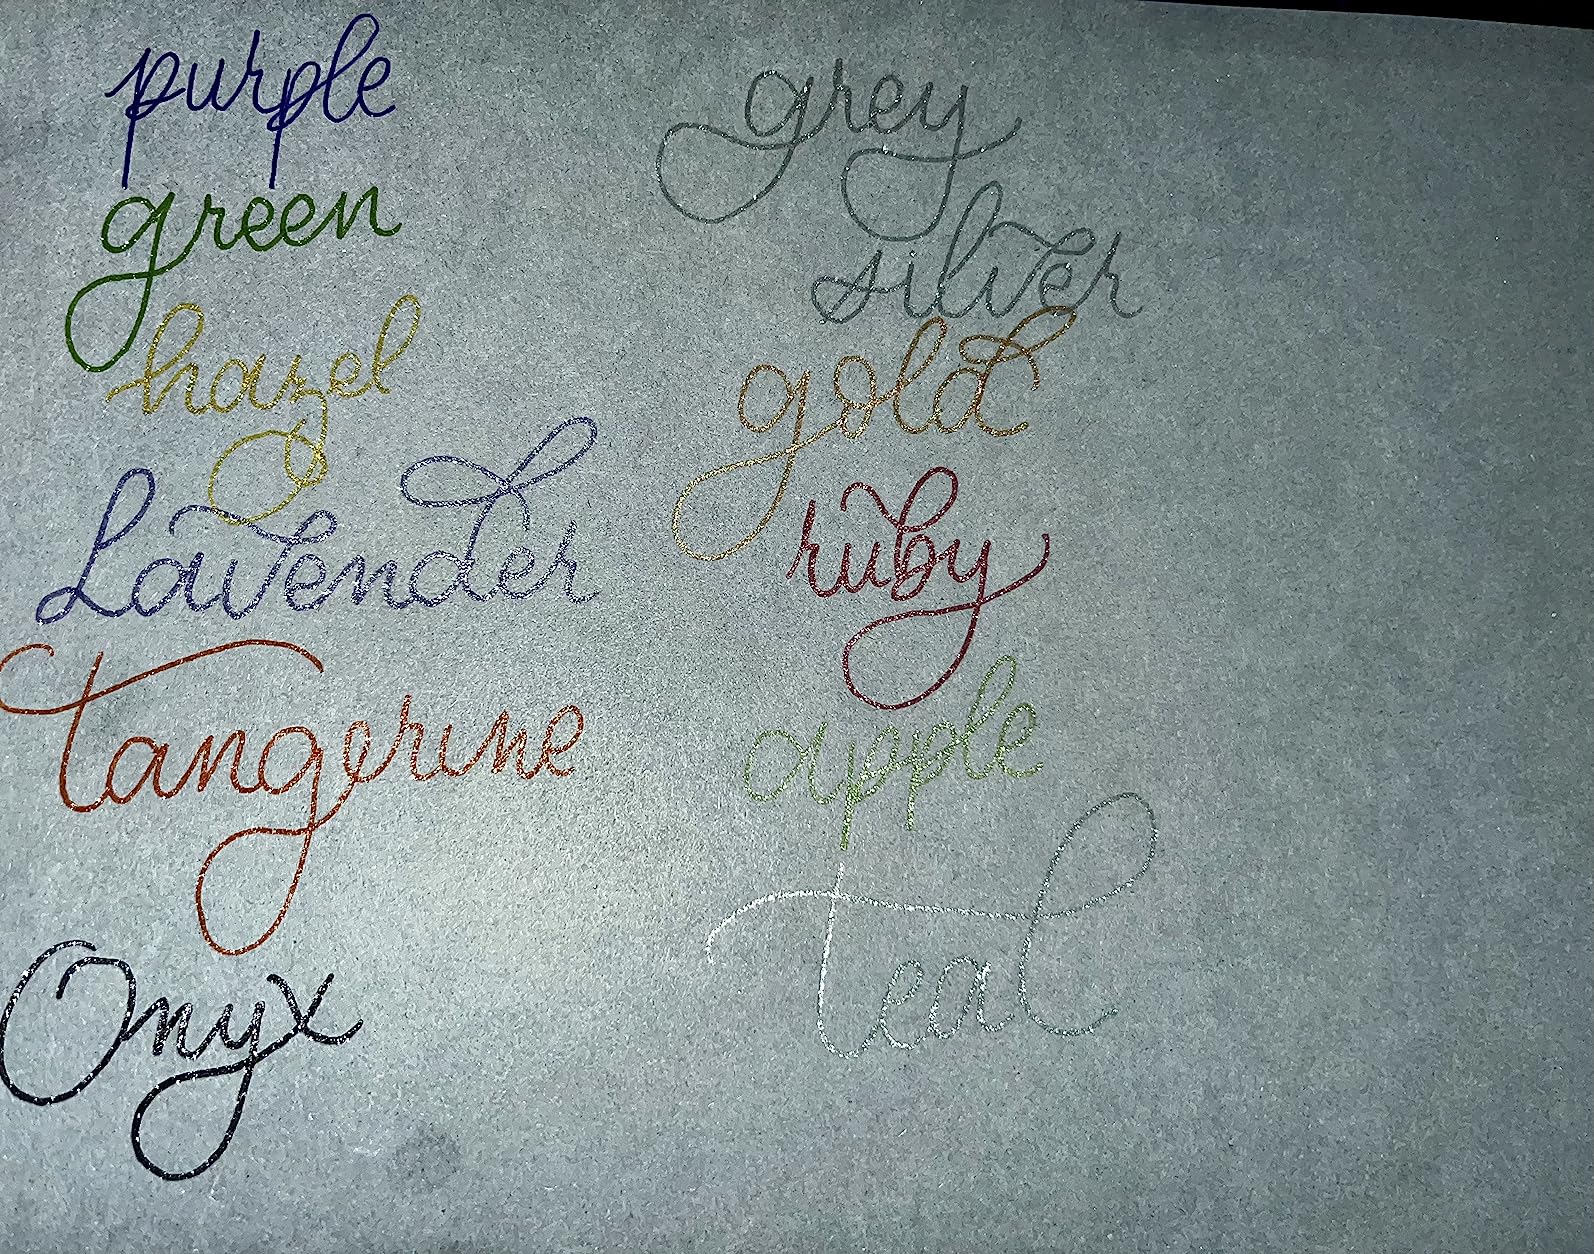 purple
green
hazel
Lavender
Tangerine
Onyx
grey
silver
gold
ruby
apple
Teal